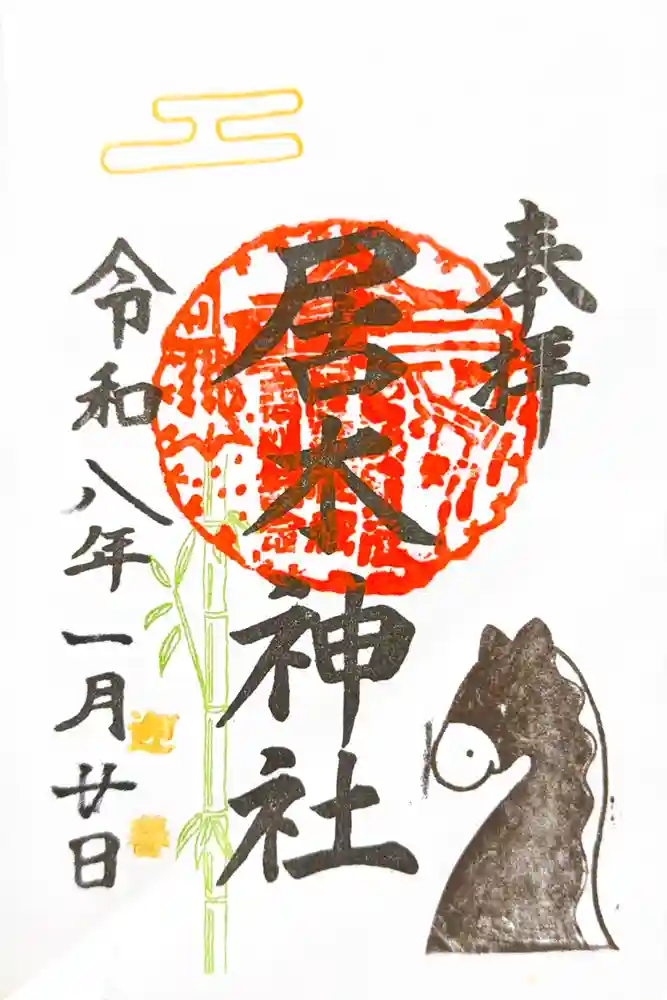 奉拝
居木神社
令和八年一月廿日
迎春